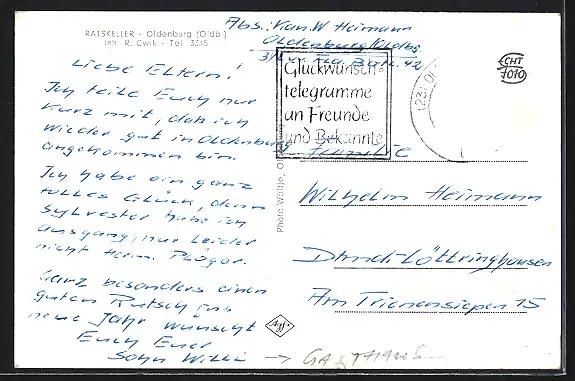 RATSKELLER - Oldenburg (Oldb)
Inh. R. Cwik - Tel. 3345
Abs.: Kan. W. Heimann
Oldenburg/Oldbg.
Liebe Eltern!
Ich teile Euch nur
kurz mit, daß ich
wieder gut in Oldenburg
angekommen bin.
Ich habe ein ganz
tolles Glück, denn
Sylvester habe ich
ausgang, nur leider
nicht Herm. Plöger.
Ganz besonders einen
guten Rutsch ins
neue Jahr wünscht
Euch Euer
Sohn Willi → GASTHAUS
Photo Wöltje, O
Glückwunsch-
telegramme
an Freunde
und Bekannte
ECHT
7010
Familie
Wilhelm Heimann
Dtmd-Löttringhausen
Am Trienensiepen 15
Agfa